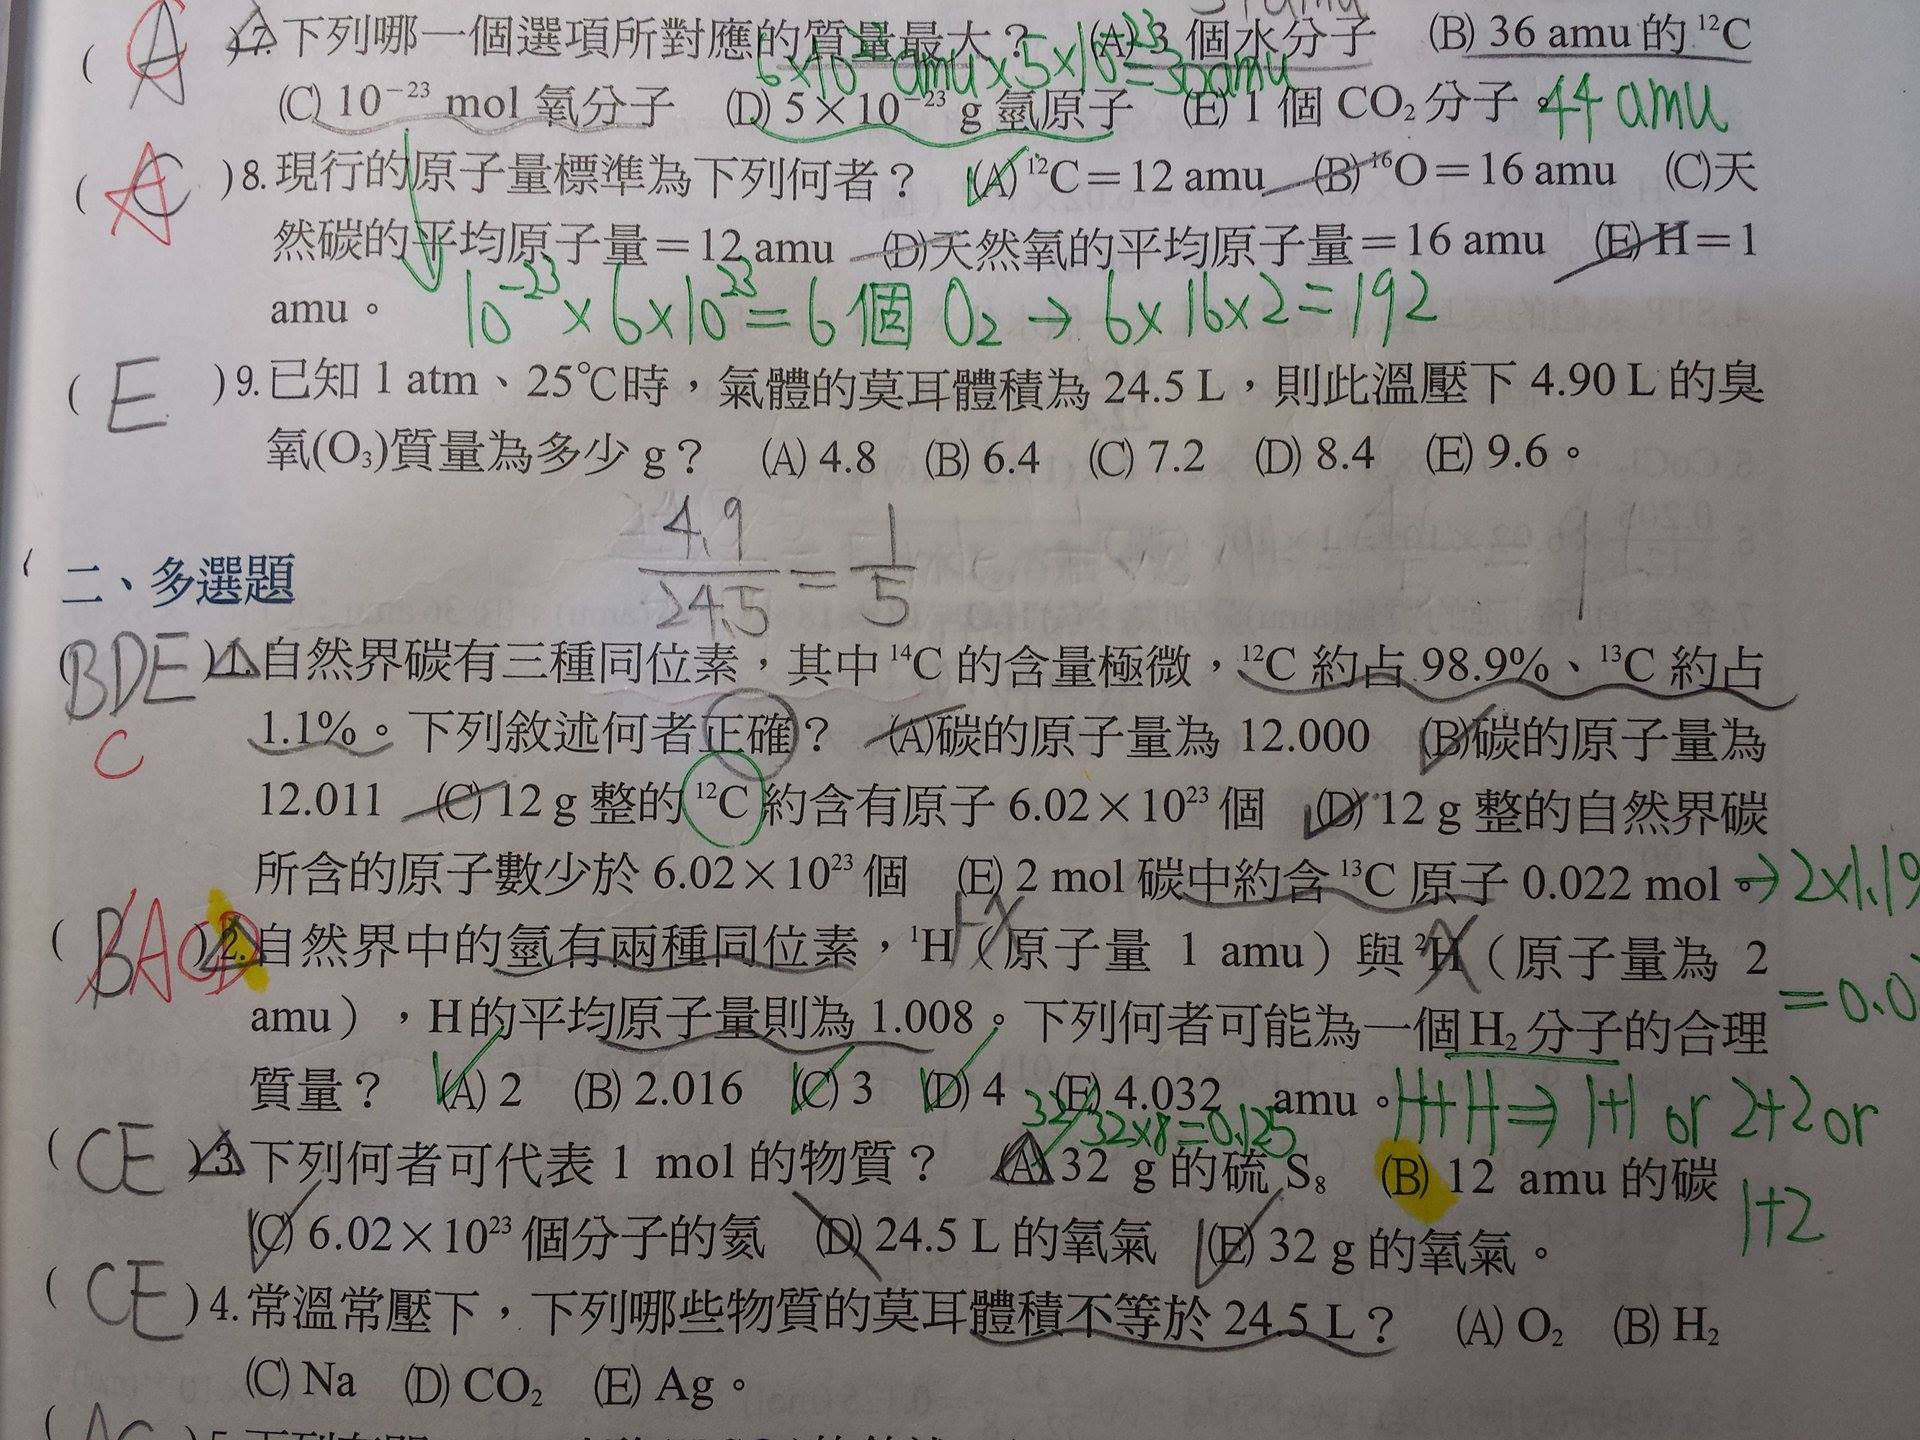 ( A C )7.下列哪一個選項所對應的質量最大? (A) 3 個水分子 (B) 36 amu的 ¹²C
6×10²³ amu×5×10⁻²³=30amu
(C) 10⁻²³ mol 氧分子 (D) 5×10⁻²³ g 氫原子 (E) 1 個 CO₂分子。44 amu
( A C )8.現行的原子量標準為下列何者? (A) ¹²C=12 amu (B) ¹⁶O=16 amu (C)天
然碳的平均原子量=12 amu (D)天然氧的平均原子量=16 amu (E) H=1
amu。 10⁻²³×6×10²³=6個 O₂→6×16×2=192
( E )9.已知 1 atm、25℃時,氣體的莫耳體積為 24.5 L,則此溫壓下 4.90 L 的臭
氧(O₃)質量為多少 g? (A) 4.8 (B) 6.4 (C) 7.2 (D) 8.4 (E) 9.6。
4.9/24.5=1/5
二、多選題
( BDE )1.自然界碳有三種同位素,其中 ¹⁴C 的含量極微,¹²C 約占 98.9%、¹³C 約占
C 1.1%。下列敘述何者正確? (A)碳的原子量為 12.000 (B)碳的原子量為
12.011 (C) 12 g 整的 ¹²C 約含有原子 6.02×10²³ 個 (D) 12 g 整的自然界碳
所含的原子數少於 6.02×10²³ 個 (E) 2 mol 碳中約含 ¹³C 原子 0.022 mol。→2×1.1%
( B ACD )2.自然界中的氫有兩種同位素,¹H(原子量 1 amu)與 ²H(原子量為 2
amu),H的平均原子量則為 1.008。下列何者可能為一個H₂分子的合理 =0.0
質量? (A) 2 (B) 2.016 (C) 3 (D) 4 (E) 4.032 amu。H+H⇒1+1 or 2+2 or
32/32×8=0.125
( CE )3.下列何者可代表 1 mol的物質? (A) 32 g 的硫 S₈ (B) 12 amu 的碳
1+2
(C) 6.02×10²³ 個分子的氦 (D) 24.5 L 的氧氣 (E) 32 g 的氧氣。
( CE )4.常溫常壓下,下列哪些物質的莫耳體積不等於 24.5 L? (A) O₂ (B) H₂
(C) Na (D) CO₂ (E) Ag。